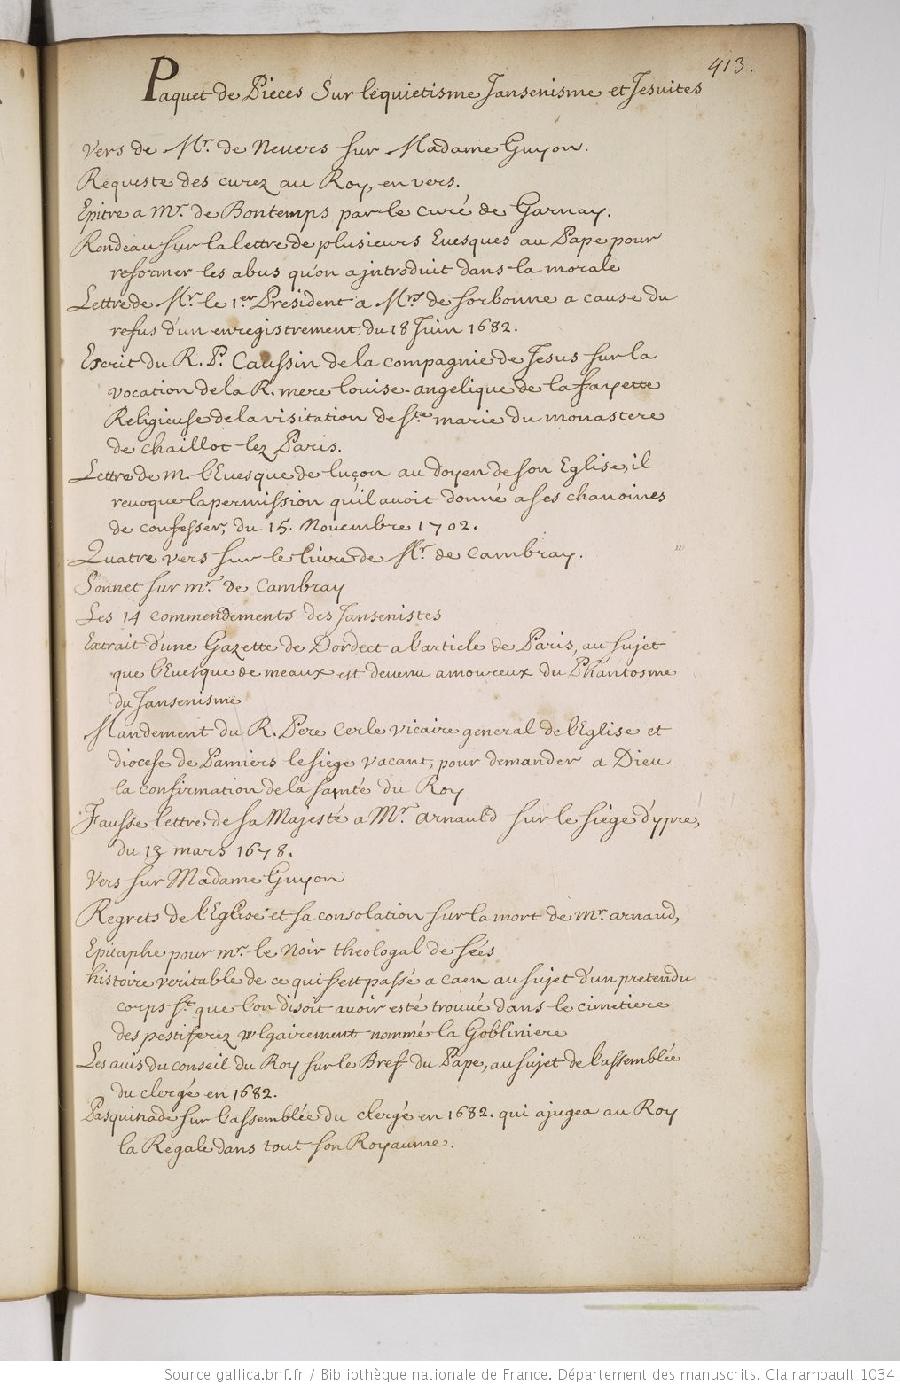 413.
Paquet de Pieces Sur lequietisme Jansenisme et Jesuites
Vers de Mr. de Nevers sur Madame Guyon.
Requeste des curez au Roy, en vers.
Epitre a Mr. de Bontemps par le curé de Garnay.
Rondeau sur la lettre de plusieurs Evesques au Pape pour
reformer les abus qu'on a jntroduit dans la morale
Lettre de Mr. le 1er President a Mrs de sorbonne a cause du
refus d'un enregistrement, du 18 Juin 1682.
Escrit du R. P. Caussin de la compagnie de Jesus sur la
vocation de la R. mere louise angelique de la fayette
Religieuse de la visitation de ste marie du monastere
de chaillot lez Paris.
Lettre de m. l'Evesque de luçon au doyen de son Eglise, il
revoque la permission qu'il avoit donné a ses chanoines
de confesser, du 15. Novembre 1702.
Quatre vers sur le livre de Mr. de cambray.
Sonnet sur mr. de Cambray
Les 14 commendements des Jansenistes
Extrait d'une Gazette de Dordect a l'article de Paris, au sujet
que l'Evesque de meaux est devenu amoureux du Phantosme
du Jansenisme
Mandement du R. Pere Cerle vicaire general de l'Eglise et
diocese de Pamiers le siege vacant, pour demander a Dieu
la confirmation de la santé du Roy
Fausse lettre de sa Majesté a Mr. arnauld sur le siege d'ypre,
du 13 mars 1678.
Vers sur Madame Guyon
Regrets de l'Eglise et sa consolation sur la mort de mr. arnaud,
Epitaphe pour mr. le Noir theologal de sées
histoire veritable de ce qui s'est passé a caen au sujet d'un pretendu
corps st. que l'on disoit avoir esté trouvé dans le cimetiere
des pestiferez vulgairement nommé la Gobliniere
Les avis du conseil du Roy sur le Bref du Pape, au sujet de l'assemblée
du clergé en 1682.
Pasquinade sur l'assemblée du clergé en 1682. qui ajugea au Roy
la Regale dans tout son Royaume.
Source gallica.bnf.fr / Bibliothèque nationale de France. Département des manuscrits. Clairambault 1034